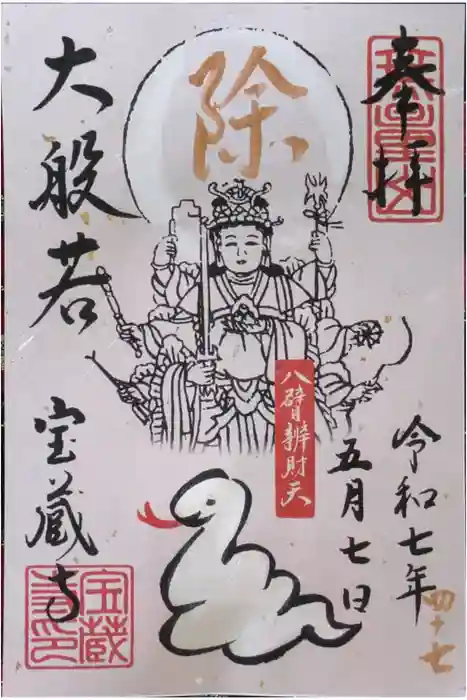 奉拝
令和七年
四十七
五月七日
除
八臂辨財天
大般若
宝蔵寺
宝蔵
寺印